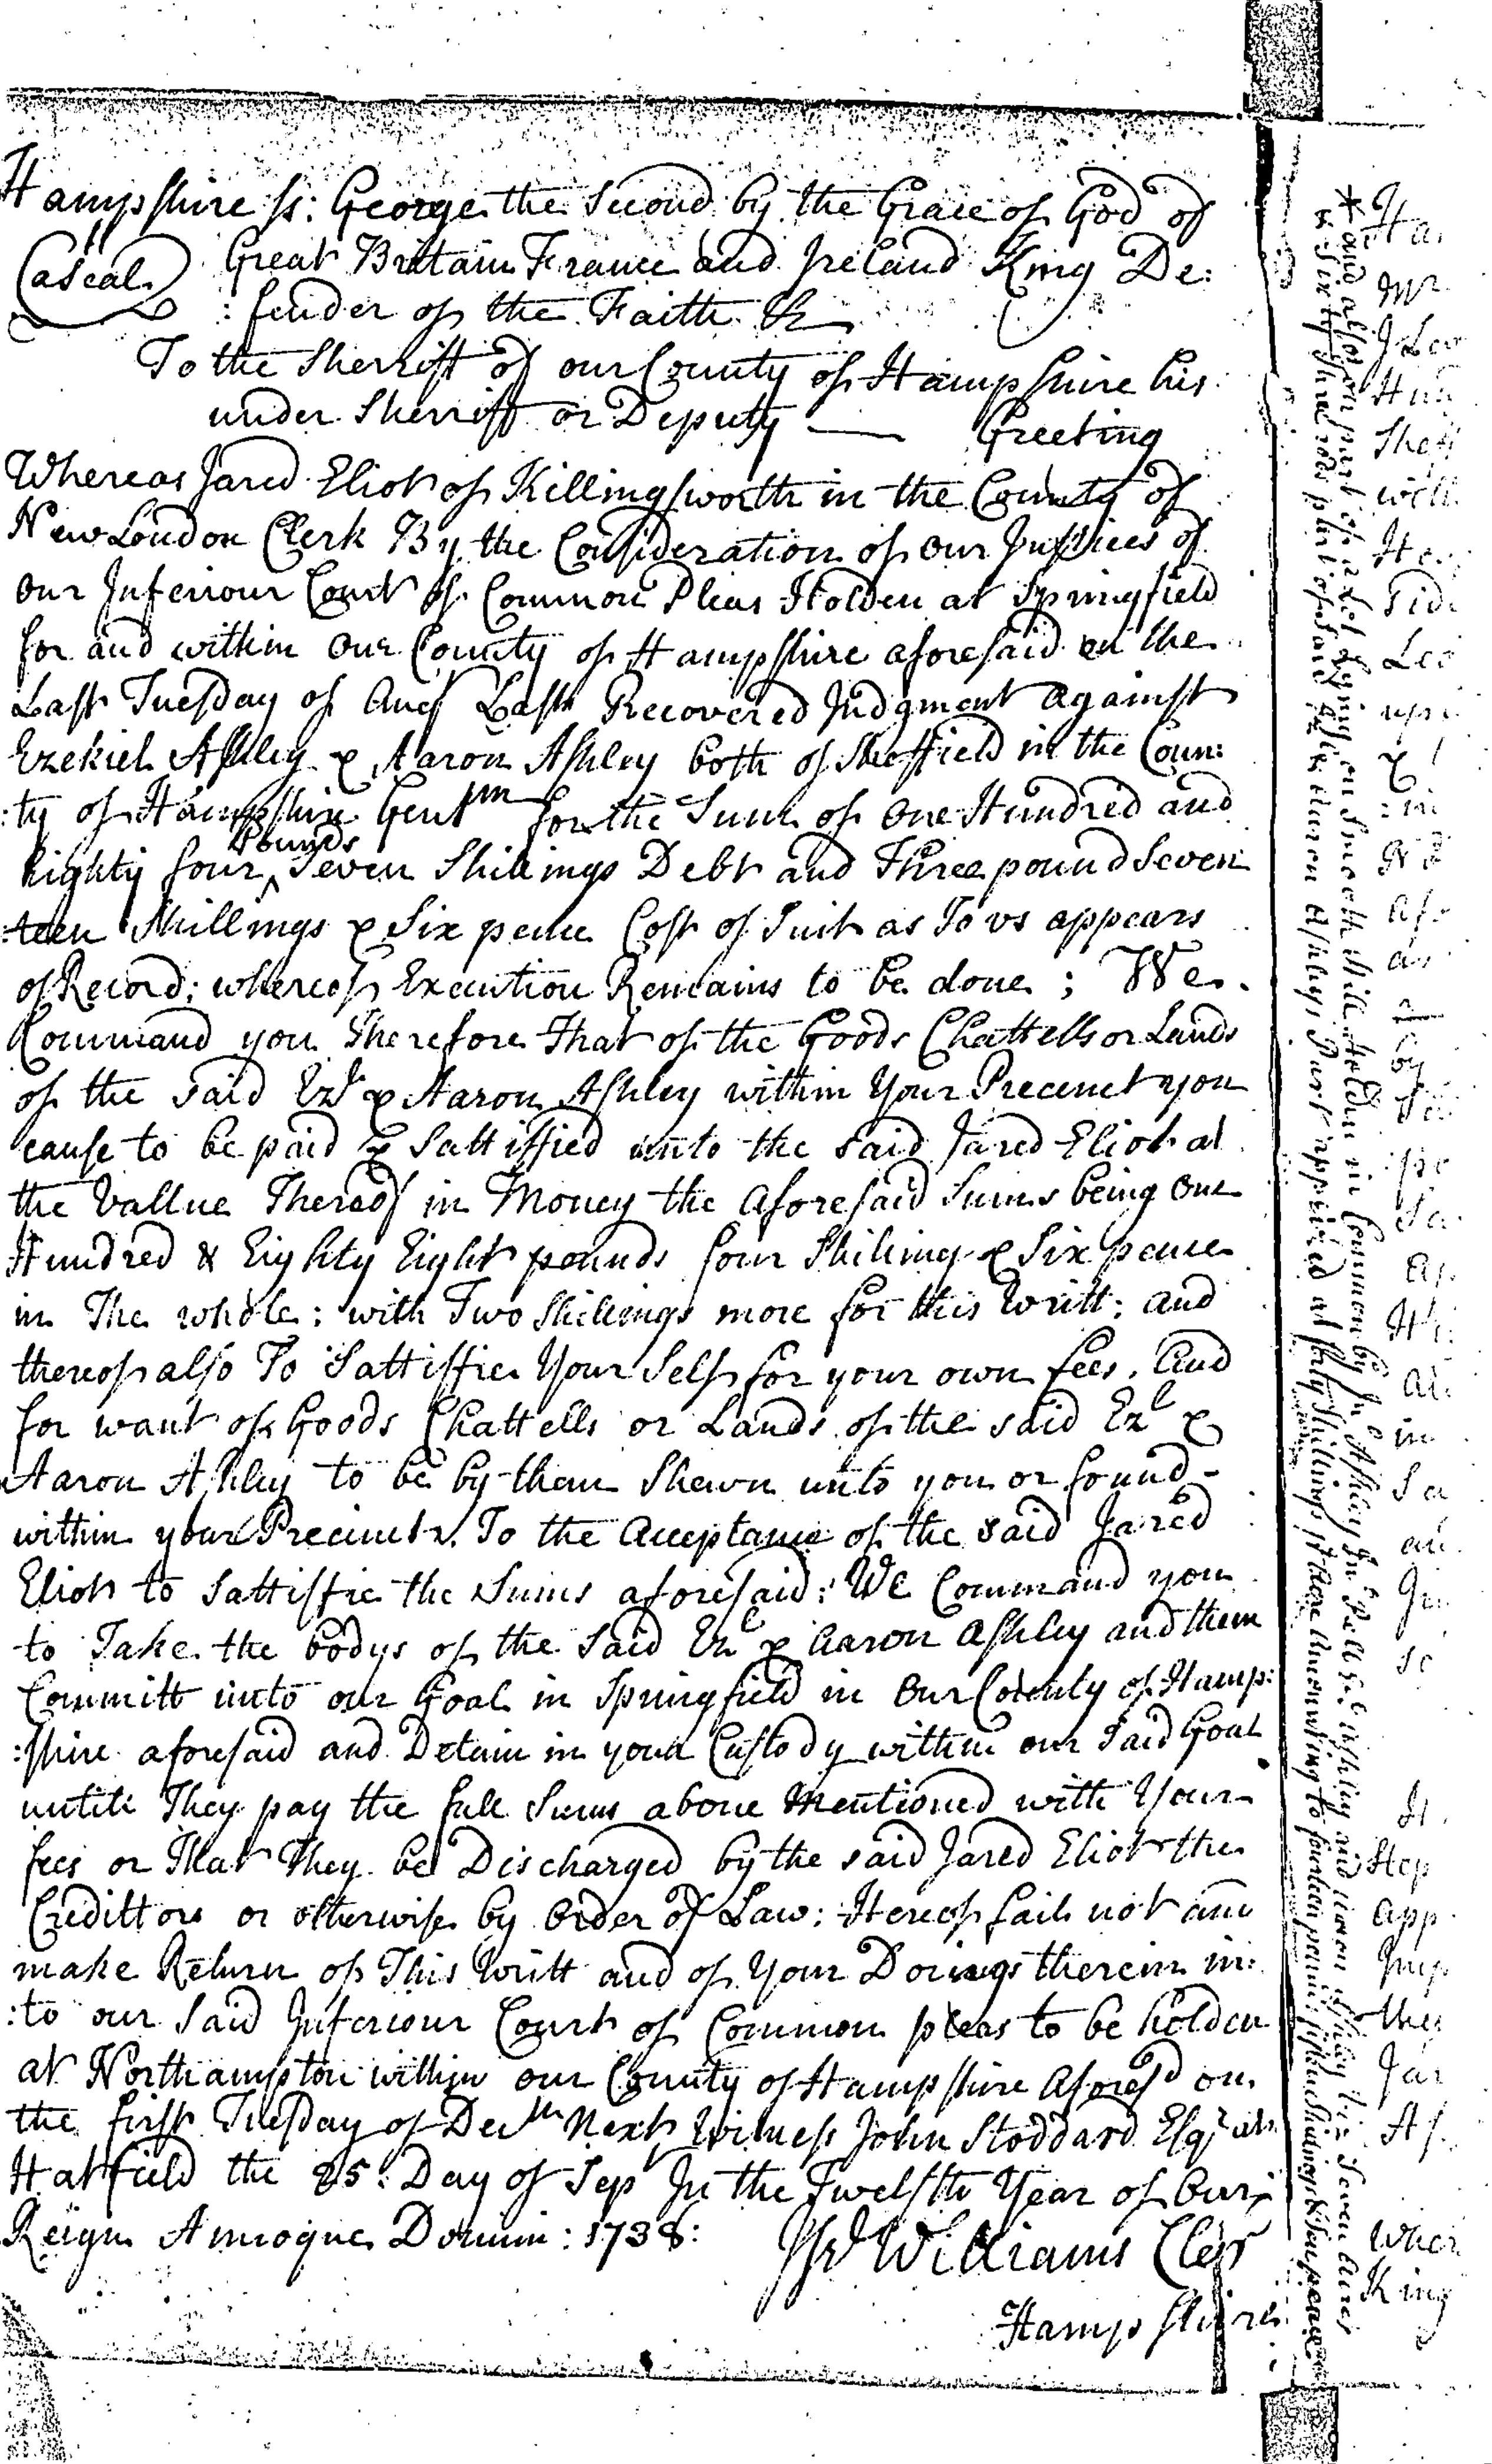 Hampshire ss: George the Second by the Grace of God of
(a seal) Great Brittain France and Ireland King De:
:fender of the Faith &c
To the Sherriff of our County of Hampshire his
under Sherriff or Deputy — Greeting
Whereas Jared Eliot of Killingsworth in the County of
New London Clerk By the Consideration of our Justices of
our Inferiour Court of Common Pleas Holden at Springfield
for and within our County of Hampshire aforesaid on the
Last Tuesday of Augt Last Recovered Judgment against
Ezekiel Ashley & Aaron Ashley both of Sheffield in the Coun:
:ty of Hampshire Gentmn for the Sum of One Hundred and
Eighty four Pounds Seven Shillings Debt and Three pound Seven
:teen Shillings & Six pence Cost of Suit as To us appears
of Record; whereof Execution Remains to be done; We
Command you Therefore That of the Goods Chattells or Lands
of the said Ezl & Aaron Ashley within Your Precinct you
cause to be paid & Sattisfied unto the said Jared Eliot at
the Vallue Thereof in Money the aforesaid Sums being One
Hundred & Eighty Eight pounds four Shillings & Six pence
in The whole; with Two Shillings more for this Writt; and
thereof also To Sattisfie Your Self for your own fees. And
for want of Goods Chattells or Lands of the said Ezl &
Aaron Ashley to be by them Shewn unto you or found
within your Precinct To the Acceptance of the said Jared
Eliot to Sattisfie the Sums aforesaid: We Command you
to Take the bodys of the said Ezl & Aaron Ashley and them
Committ unto our Goal in Springfield in our County of Hamp:
:shire aforesaid and Detain in your Custody within our Said Goal
untill They pay the full Sums above Mentioned with Your
fees or That They be Discharged by the said Jared Eliot the
Credittor or otherwise by Order of Law: Hereof fail not and
make Return of This Writt and of Your Doings therein in:
:to our Said Inferiour Court of Common pleas to be holden
at Northampton within our County of Hampshire Aforesd on
the first Tuesday of Decm Next Witness John Stoddard Esqr at
Hatfield the 25: Day of Sept In the Twelfth Year of Our
Reign Annoque Domini: 1738:
Williams Cler
Hampshire
* and also on part of a Lot Lying on Smooth Hill Holden in Common by Jno Ashley and Aaron Ashley Seven Acres
& Sixty three rods part of said Aaron Ashleys Part apprized at forty Shillings pr Acre Amounting to fourteen pounds fifteen Shillings & Six pence